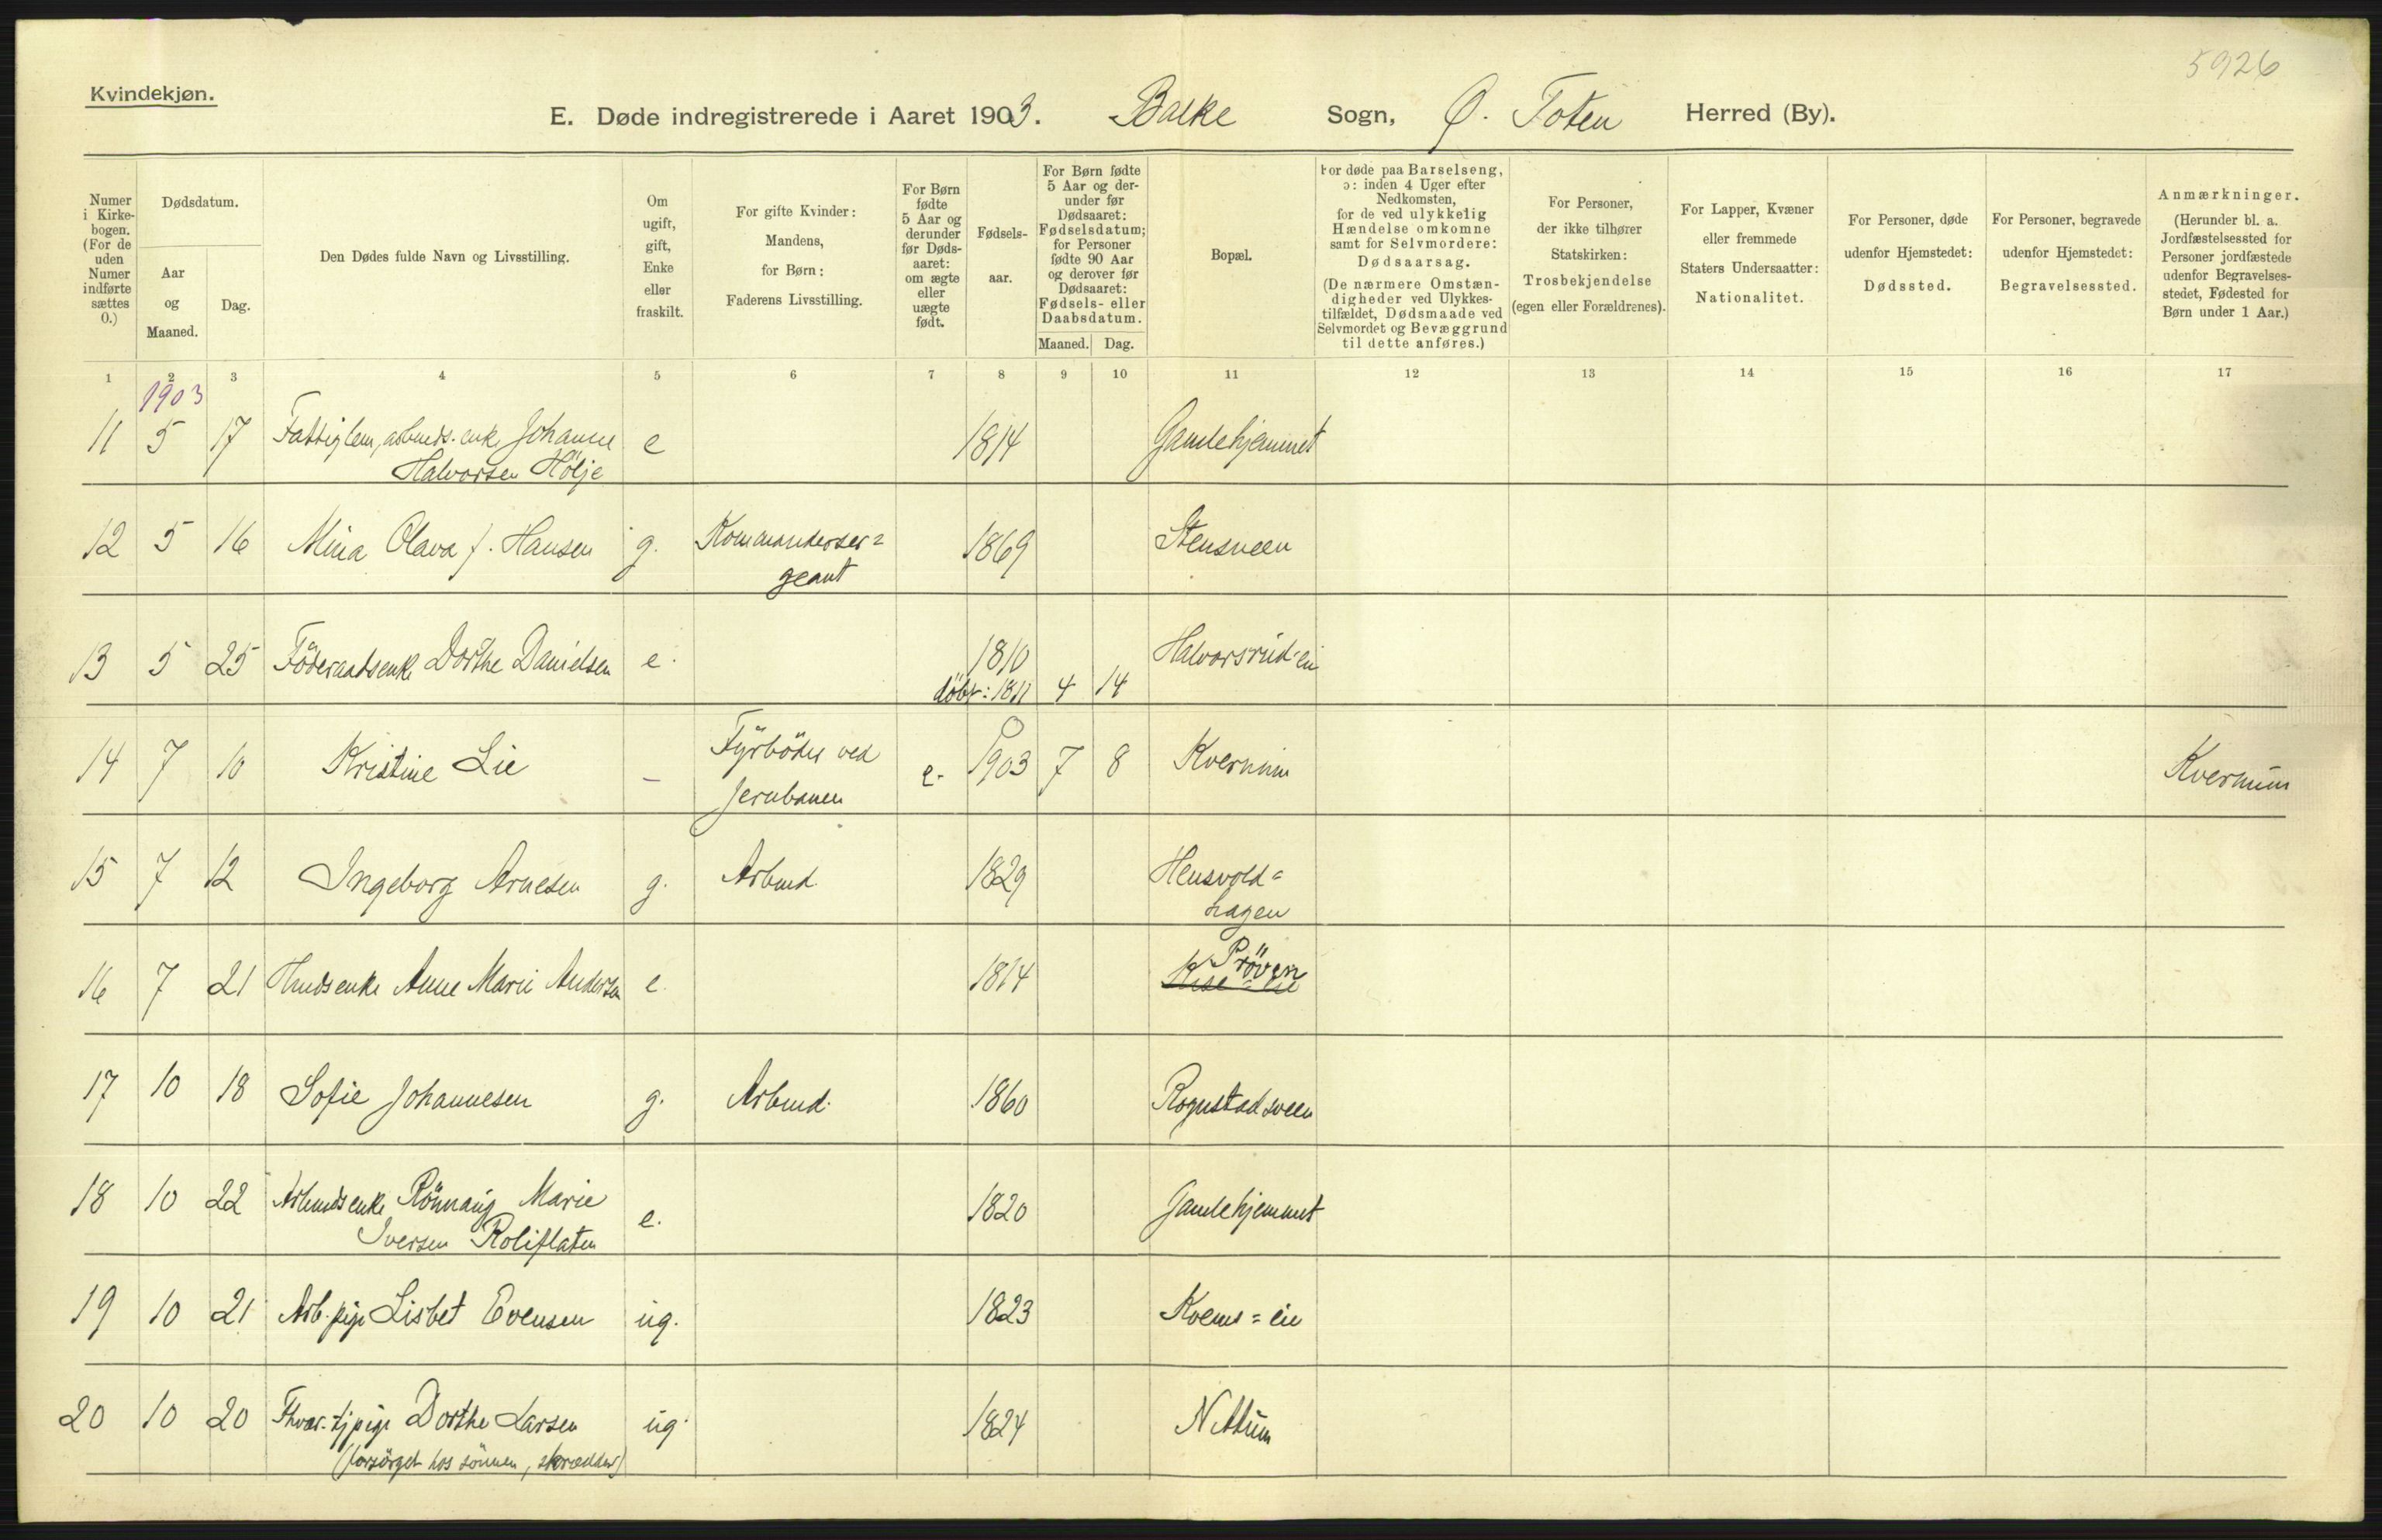 5926
Kvindekjøn.
E. Døde indregistrerede i Aaret 1903. Balke Sogn, Ø. Toten Herred (By).
Numer i Kirkebogen. (For de uden Numer indførte sættes 0.)
Dødsdatum.
Aar og Maaned.
Dag.
Den Dødes fulde Navn og Livsstilling.
Om ugift, gift, Enke eller fraskilt.
For gifte Kvinder: Mandens, for Børn: Faderens Livsstilling.
For Børn fødte 5 Aar og derunder før Dødsaaret: om ægte eller uægte født.
Fødselsaar.
For Børn fødte 5 Aar og derunder før Dødsaaret: Fødselsdatum; for Personer fødte 90 Aar og derover før Dødsaaret: Fødsels- eller Daabsdatum.
Maaned. Dag.
Bopæl.
For døde paa Barselseng, ɔ: inden 4 Uger efter Nedkomsten, for de ved ulykkelig Hændelse omkomne samt for Selvmordere: Dødsaarsag. (De nærmere Omstændigheder ved Ulykkestilfældet, Dødsmaade ved Selvmordet og Bevæggrund til dette anføres.)
For Personer, der ikke tilhører Statskirken: Trosbekjendelse (egen eller Forældrenes).
For Lapper, Kvæner eller fremmede Staters Undersaatter: Nationalitet.
For Personer, døde udenfor Hjemstedet: Dødssted.
For Personer, begravede udenfor Hjemstedet: Begravelsessted.
Anmærkninger. (Herunder bl. a. Jordfæstelsessted for Personer jordfæstede udenfor Begravelsesstedet, Fødested for Børn under 1 Aar.)
1 2 3 4 5 6 7 8 9 10 11 12 13 14 15 16 17
1903
11 5 17 Fattiglem, arbmds. enke Johanne e 1814 Gamlehjemmet
Halvorsen Hölje
12 5 16 Mina Olava f. Hansen g. Kommanderser= 1869 Stensveen
geant
13 5 25 Föderaadsenke Dorthe Danielsen e. 1810 Halvorsrud-ei
döbt: 1811 4 14
14 7 10 Kristine Lie – Fyrböder ved e. 1903 7 8 Kvernum Kvernum
Jernbanen
15 7 12 Ingeborg Arnesen g. Arbmd. 1829 Hensvold=
hagen
Pröven
16 7 21 Hmdsenke Anne Marie Andersen e. 1814
17 10 18 Sofie Johannesen g. Arbmd. 1860 Rognstadsveen
18 10 22 Arbmds enke Rönnaug Marie e. 1820 Gamlehjemmet
Iversen Roliflaten
19 10 21 Arb. pige Lisbet Evensen ug. 1823 Kvems=eie
20 10 20 Fhvær. tjpige Dorthe Larsen ug. 1824 Nettum
(forsörget hos sönnen, skrædder)